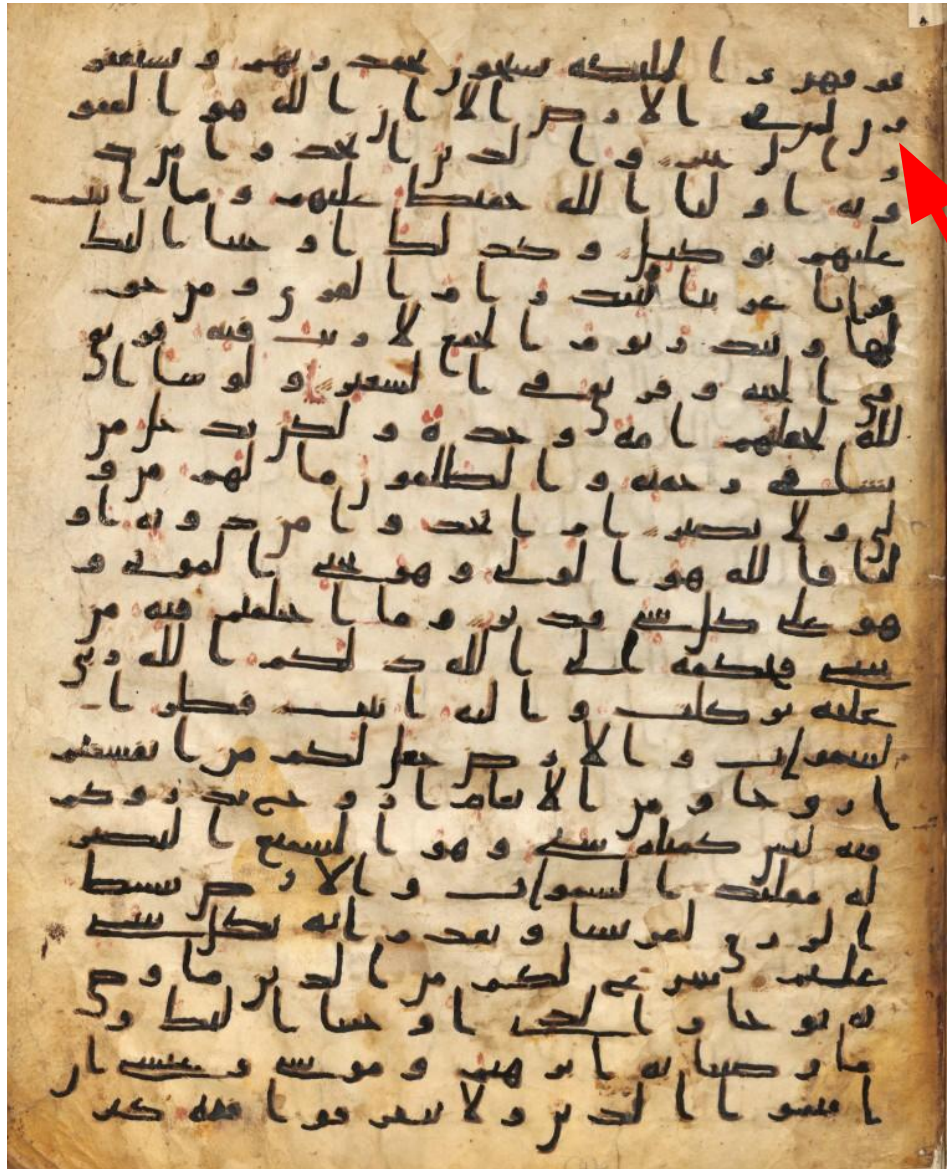 فوقهن والملئكة يسبحون بحمد ربهم ويستغفر
ون لمن في الارض الا ان الله هو الغفو
ر الرحيم والذين اتخذوا من د
ونه اوليا الله حفيظ عليهم وما انت
عليهم بوكيل وكذلك اوحينا اليك
قرانا عربيا لتنذر ام القرى ومن حو
لها وتنذر يوم الجمع لا ريب فيه فريق
في الجنة وفريق في السعير ولو شا ا
لله لجعلهم امة وحدة ولكن يدخل من
يشا في رحمته والظلمون ما لهم من و
لي ولا نصير ام اتخذوا من دونه او
ليا فالله هو الولي وهو يحي الموتى و
هو على كل شي قدير وما اختلفتم فيه من
شي فحكمه الى الله ذلكم الله ربي
عليه توكلت واليه انيب فطر ا
لسموات والارض جعل لكم من انفسكم
ازوجا ومن الانعام ازوجا يذروكم
فيه ليس كمثله شي وهو السميع البصير
له مقليد السموات والارض يبسط
الرزق لمن يشا ويقدر انه بكل شي
عليم شرع لكم من الدين ما وصى
به نوحا والذي اوحينا اليك و
ما وصينا به ابرهيم وموسى وعيسى ان
اقيموا الدين ولا تتفرقوا فيه كبر